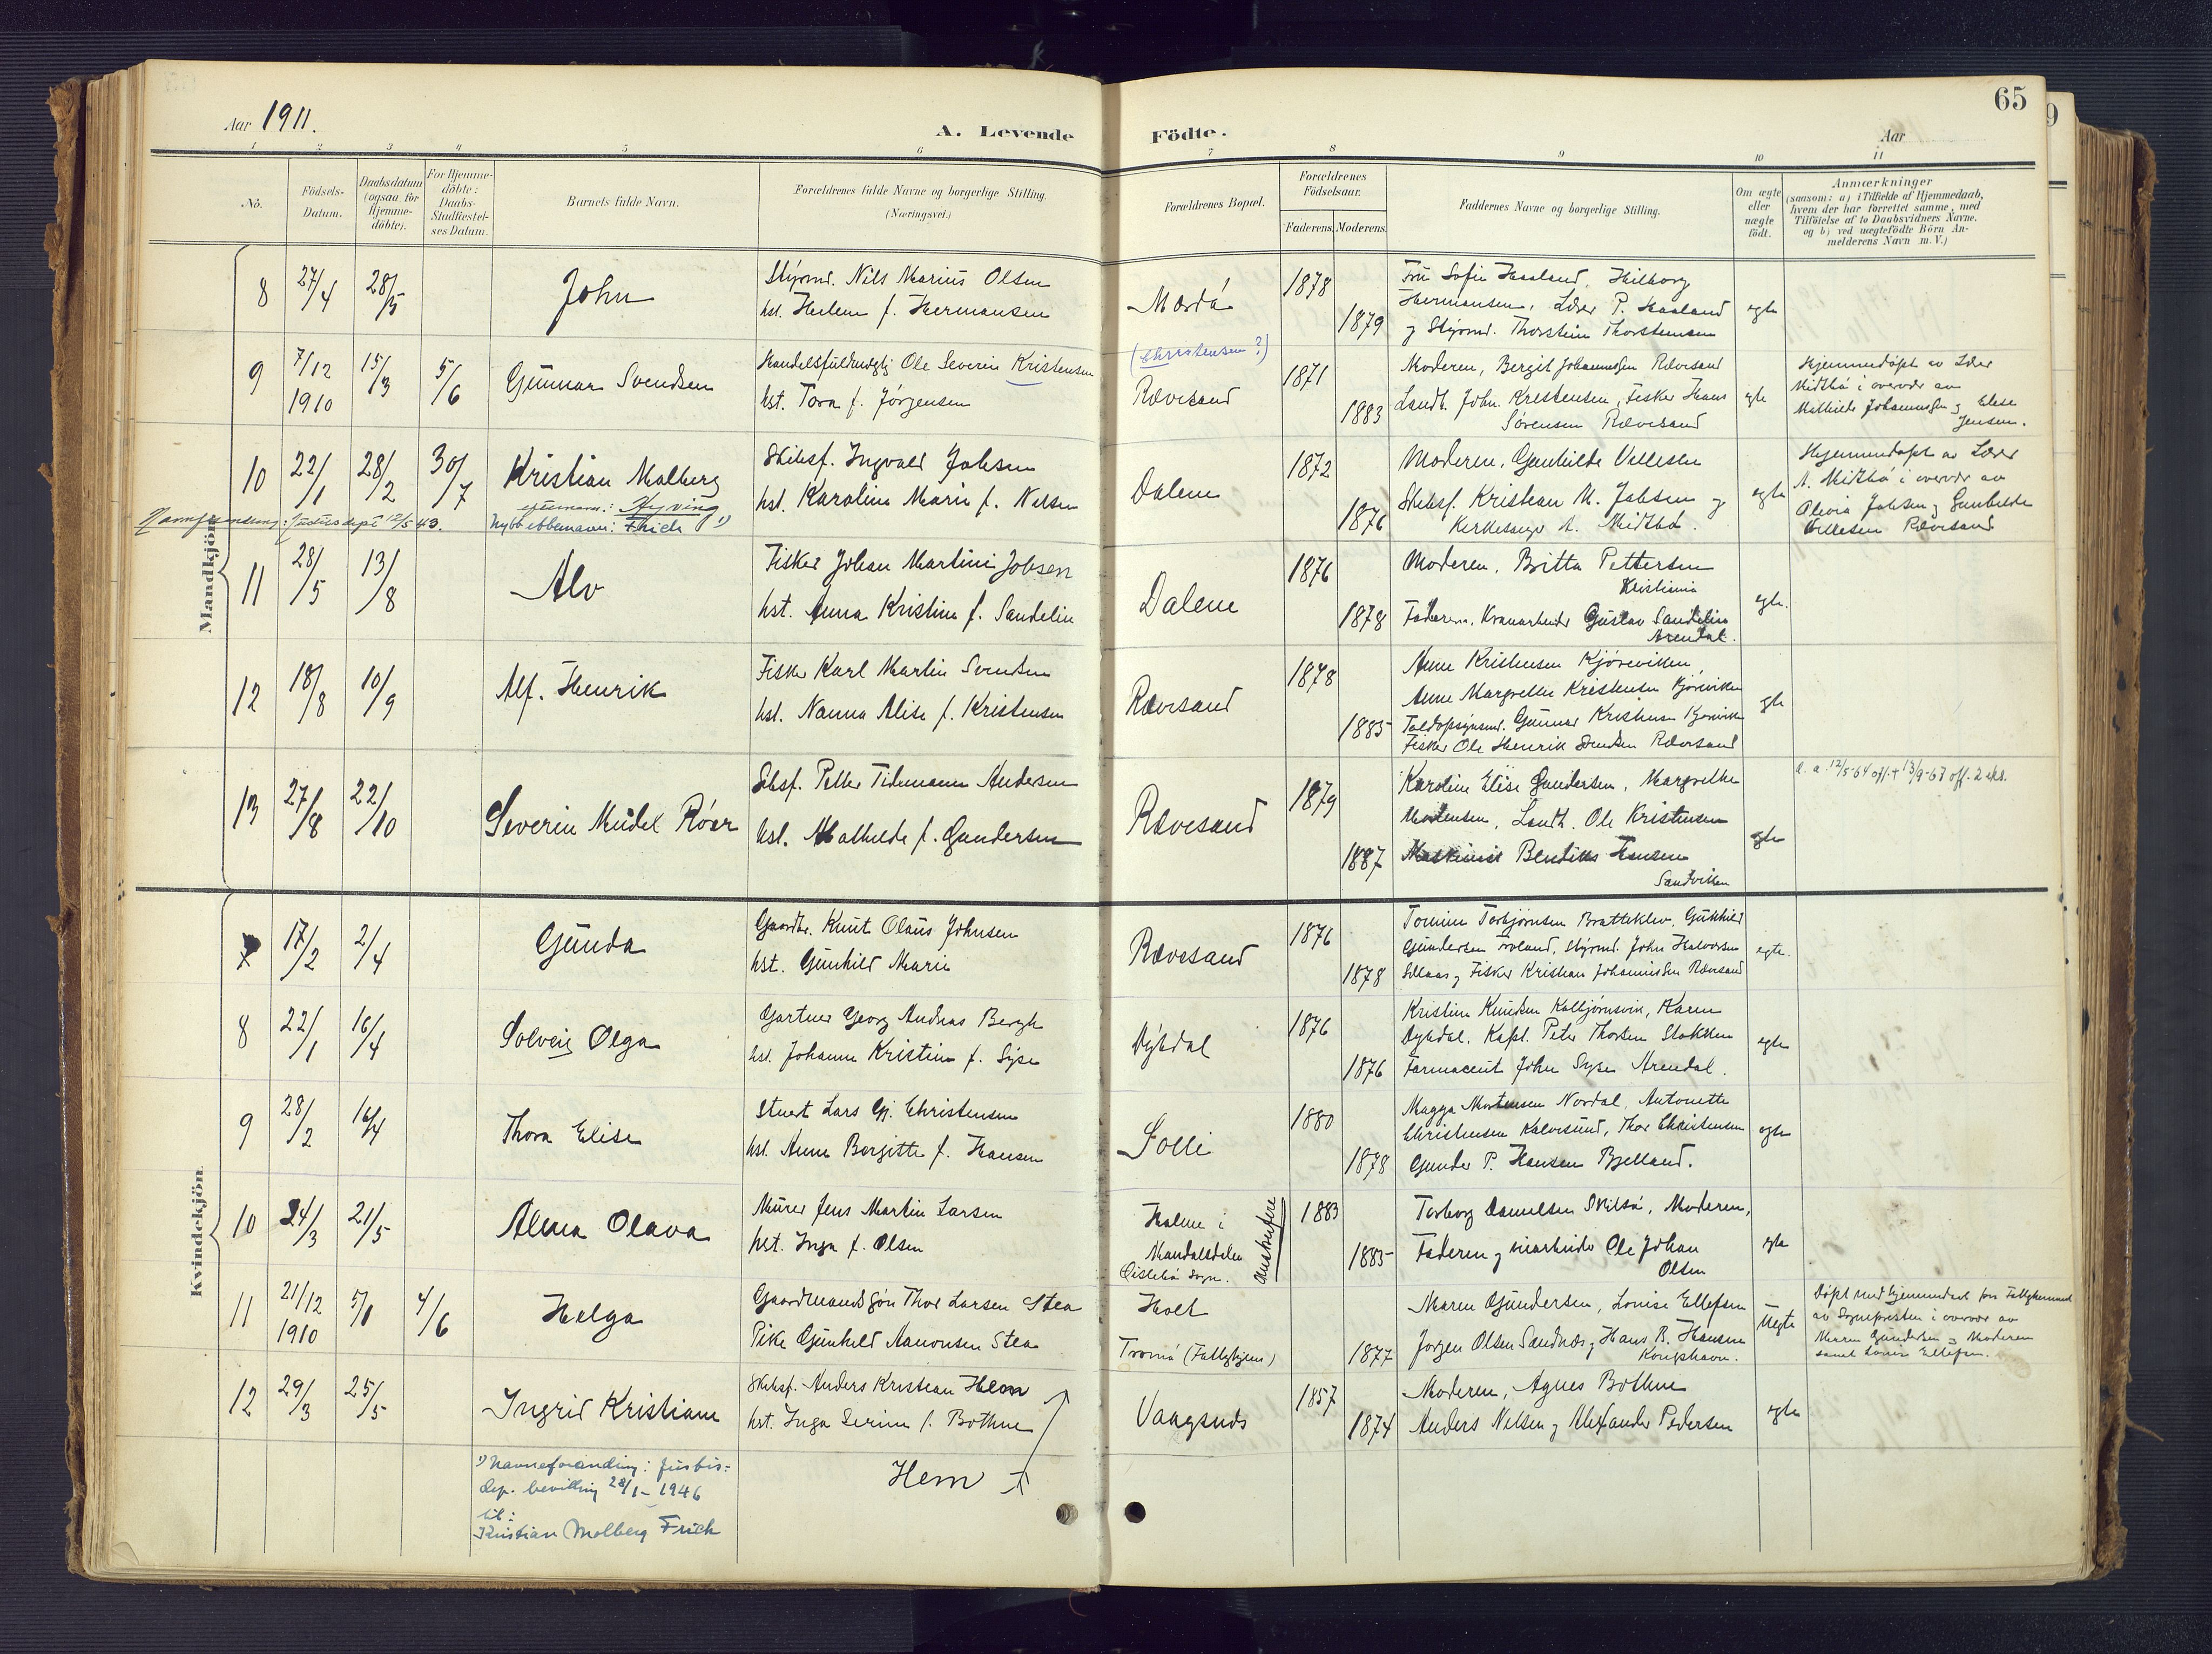 Aar 1911.
A. Levende Födte.
Aar
65
1 2 3 4 5 6 7 8 9 10 11
No.
Födsels-
Datum.
Daabsdatum
(ogsaa for
Hjemme-
döbte).
For Hjemme-
döbte:
Daabs-
Stadfæstel-
ses Datum.
Barnets fulde Navn.
Forældrenes fulde Navne og borgerlige Stilling.
(Næringsvei.)
Forældrenes Bopæl.
Forældrenes
Födselsaar.
Faderens. Moderens.
Faddernes Navne og borgerlige Stilling.
Om ægte
eller
uægte
födt.
Anmærkninger
(saasom: a) i Tilfælde af Hjemmedaab,
hvem der har forrettet samme, med
Tilföielse af to Daabsvidners Navne.
og b) ved uægtefödte Börn An-
melderens Navn m. V.)
Mandkjön
8 27/4 28/5 John
Styrmd. Nils Marius Olsen
hst. Helene f. Hermansen
Mærdø
1878
1879
Fru Sofie Haaland, Hilborg
Hermansen, Lærer P. Haaland
og Styrmd. Thorstein Thorstensen
egte
9 7/12 1910 15/3 5/6 Gunnar Svendsen
Handelsfuldmægtig Ole Severin Kristensen
hst. Tora f. Jørgensen
(Christensen?)
Rævesand
1871
1883
Moderen, Bergit Johannesen Rævesand
Landh. John Kristensen, Fisker Hans
Sörensen Rævesand
egte
Hjemmedøpt av Lærer
Midtbö i overvær av
Mathilde Johannesen og Elise
Jensen.
10 22/1 28/2 30/7 Kristian Malberg
Skibsf. Ingvald Jaksen
hst. Karoline Marie f. Nelsen
Dalene
1872
1876
Moderen, Gunhilde Vellesen
Skibsf. Kristian M. Jabsen og
Kirkesanger A. Midtbö.
egte
Hjemmedøpt av Lærer
A. Midtbö i overvær av
Olivia Jabsen og Gunhilde
Vellesen Rævesand
Navneforandring: Justisdept 12/5 43.
efternavn: Hyving
Nytt ettenavn: Frich 1)
11 28/5 13/8 Alv
Fisker Johan Martini Jobsen
hst. Anna Kristine f. Sandelin
Dalene
1876
1878
Moderen, Britta Pettersen
Kristiania
Faderen, Kranarbeider Gustav Sandelin
Arendal.
egte.
12 18/8 10/9 Alf. Henrik
Fisker Karl Martin Svendsen
hst. Nanna Alise f. Kristensen
Rævesand
1878
1885
Anne Kristensen Kjöreviken,
Anne Margrethe Kristensen Kjöreviken
Toldopsynsmd. Gunnar Kristensen Kjöreviken
Fisker Ole Henrik Svendsen Rævesand
egte
13 27/8 22/10 Severin Meidel Röer
Skbsf. Petter Tidemann Andersen
hst. Mathilde f. Gundersen
Rævesand
1879
1887
Karoline Elise Gundersen, Margrethe
Mortensen, Landh. Ole Kristensen
Maskinist Bendiks Hansen
Sandviken
egte
12/5-64 off. + 13/9-67 off. 2 eks.
Kvindekjön
7 17/2 2/4 Gunda
Gaardbr. Knut Olaus Johnsen
hst. Gunhild Marie
Rævesand
1876
1878
Tomine Torbjörnsen Bratteklev, Gunhild
Gundersen Froland, Styrmd. John Halvorsen
Sellaas og Fisker Kristian Johannesen Rævesand
egte.
8 22/1 16/4 Solveig Olga
Gartner Georg Andreas Bergh
hst. Johanne Kristine f. Syse
Dybdal
1876
1876
Kristine Knudsen Kalbjørnsvik, Karen
Dybdal, Kapt. Peter Thorsen Stokken
Farmaceut John Syse Arendal.
egte
9 28/2 16/4 Thora Elise
Stuert Lars Gj. Christensen
hst. Anne Bergitte f. Hansen
Solli
1880
1878
Magga Mortensen Nordal, Antonette
Christensen Kalvesund, Thor Christensen
Gunder P. Hansen Bjelland.
egte
10 24/3 21/5 Alma Olava
Murer Jens Martin Larsen
hst. Inga f. Olsen
Holme i
Mandalsdalen
Öislebö Sogn.
1883
1885
Torborg Danielsen Skilsö, Moderen,
Faderen og Ole Johan
Olsen
egte
11 21/12 1910 5/1 4/6 Helga
Gaardmandssön Thor Larsen Stea
Pike Gunhild Aanonsen Stea
Holt
Tromö (Fattighjem)
1877
Maren Gundersen, Louise Ellefsen
Jörgen Olsen Sandnæs og Hans B. Hansen
Kongshavn.
Uegte
av Sognepresten i overvær av
Maren Gundersen og Moderen
samt Louise Ellefsen.
12 29/3 25/5 Ingrid Kristiane
Skibsf. Anders Kristian Hem
hst. Inga Serine f. Bothne
Hem
Vaagsnes
1857
1874
Moderen, Agnes Bothne
Anders Nelsen og Alexander Pedersen
egte
1) Navneforandring: Justis-
dep. bevilling 28/1-1946
til:
Kristian Malberg Frich